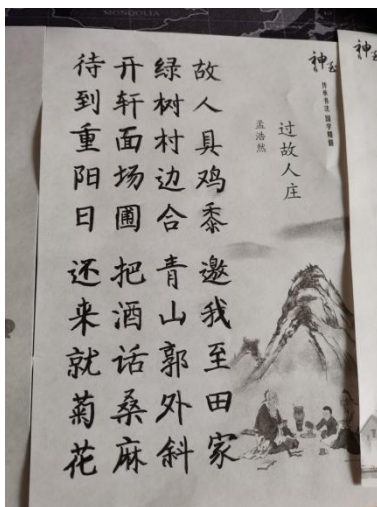 MONGOLIA
过故人庄
孟浩然
故人具鸡黍 邀我至田家
绿树村边合 青山郭外斜
开轩面场圃 把酒话桑麻
待到重阳日 还来就菊花
神
神